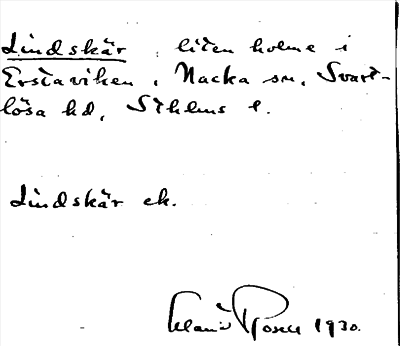 Lindskär, liten holme i
Erstaviken, Nacka sn, Svart-
lösa hd, Sthlms l.
Lindskär ek.
1930.